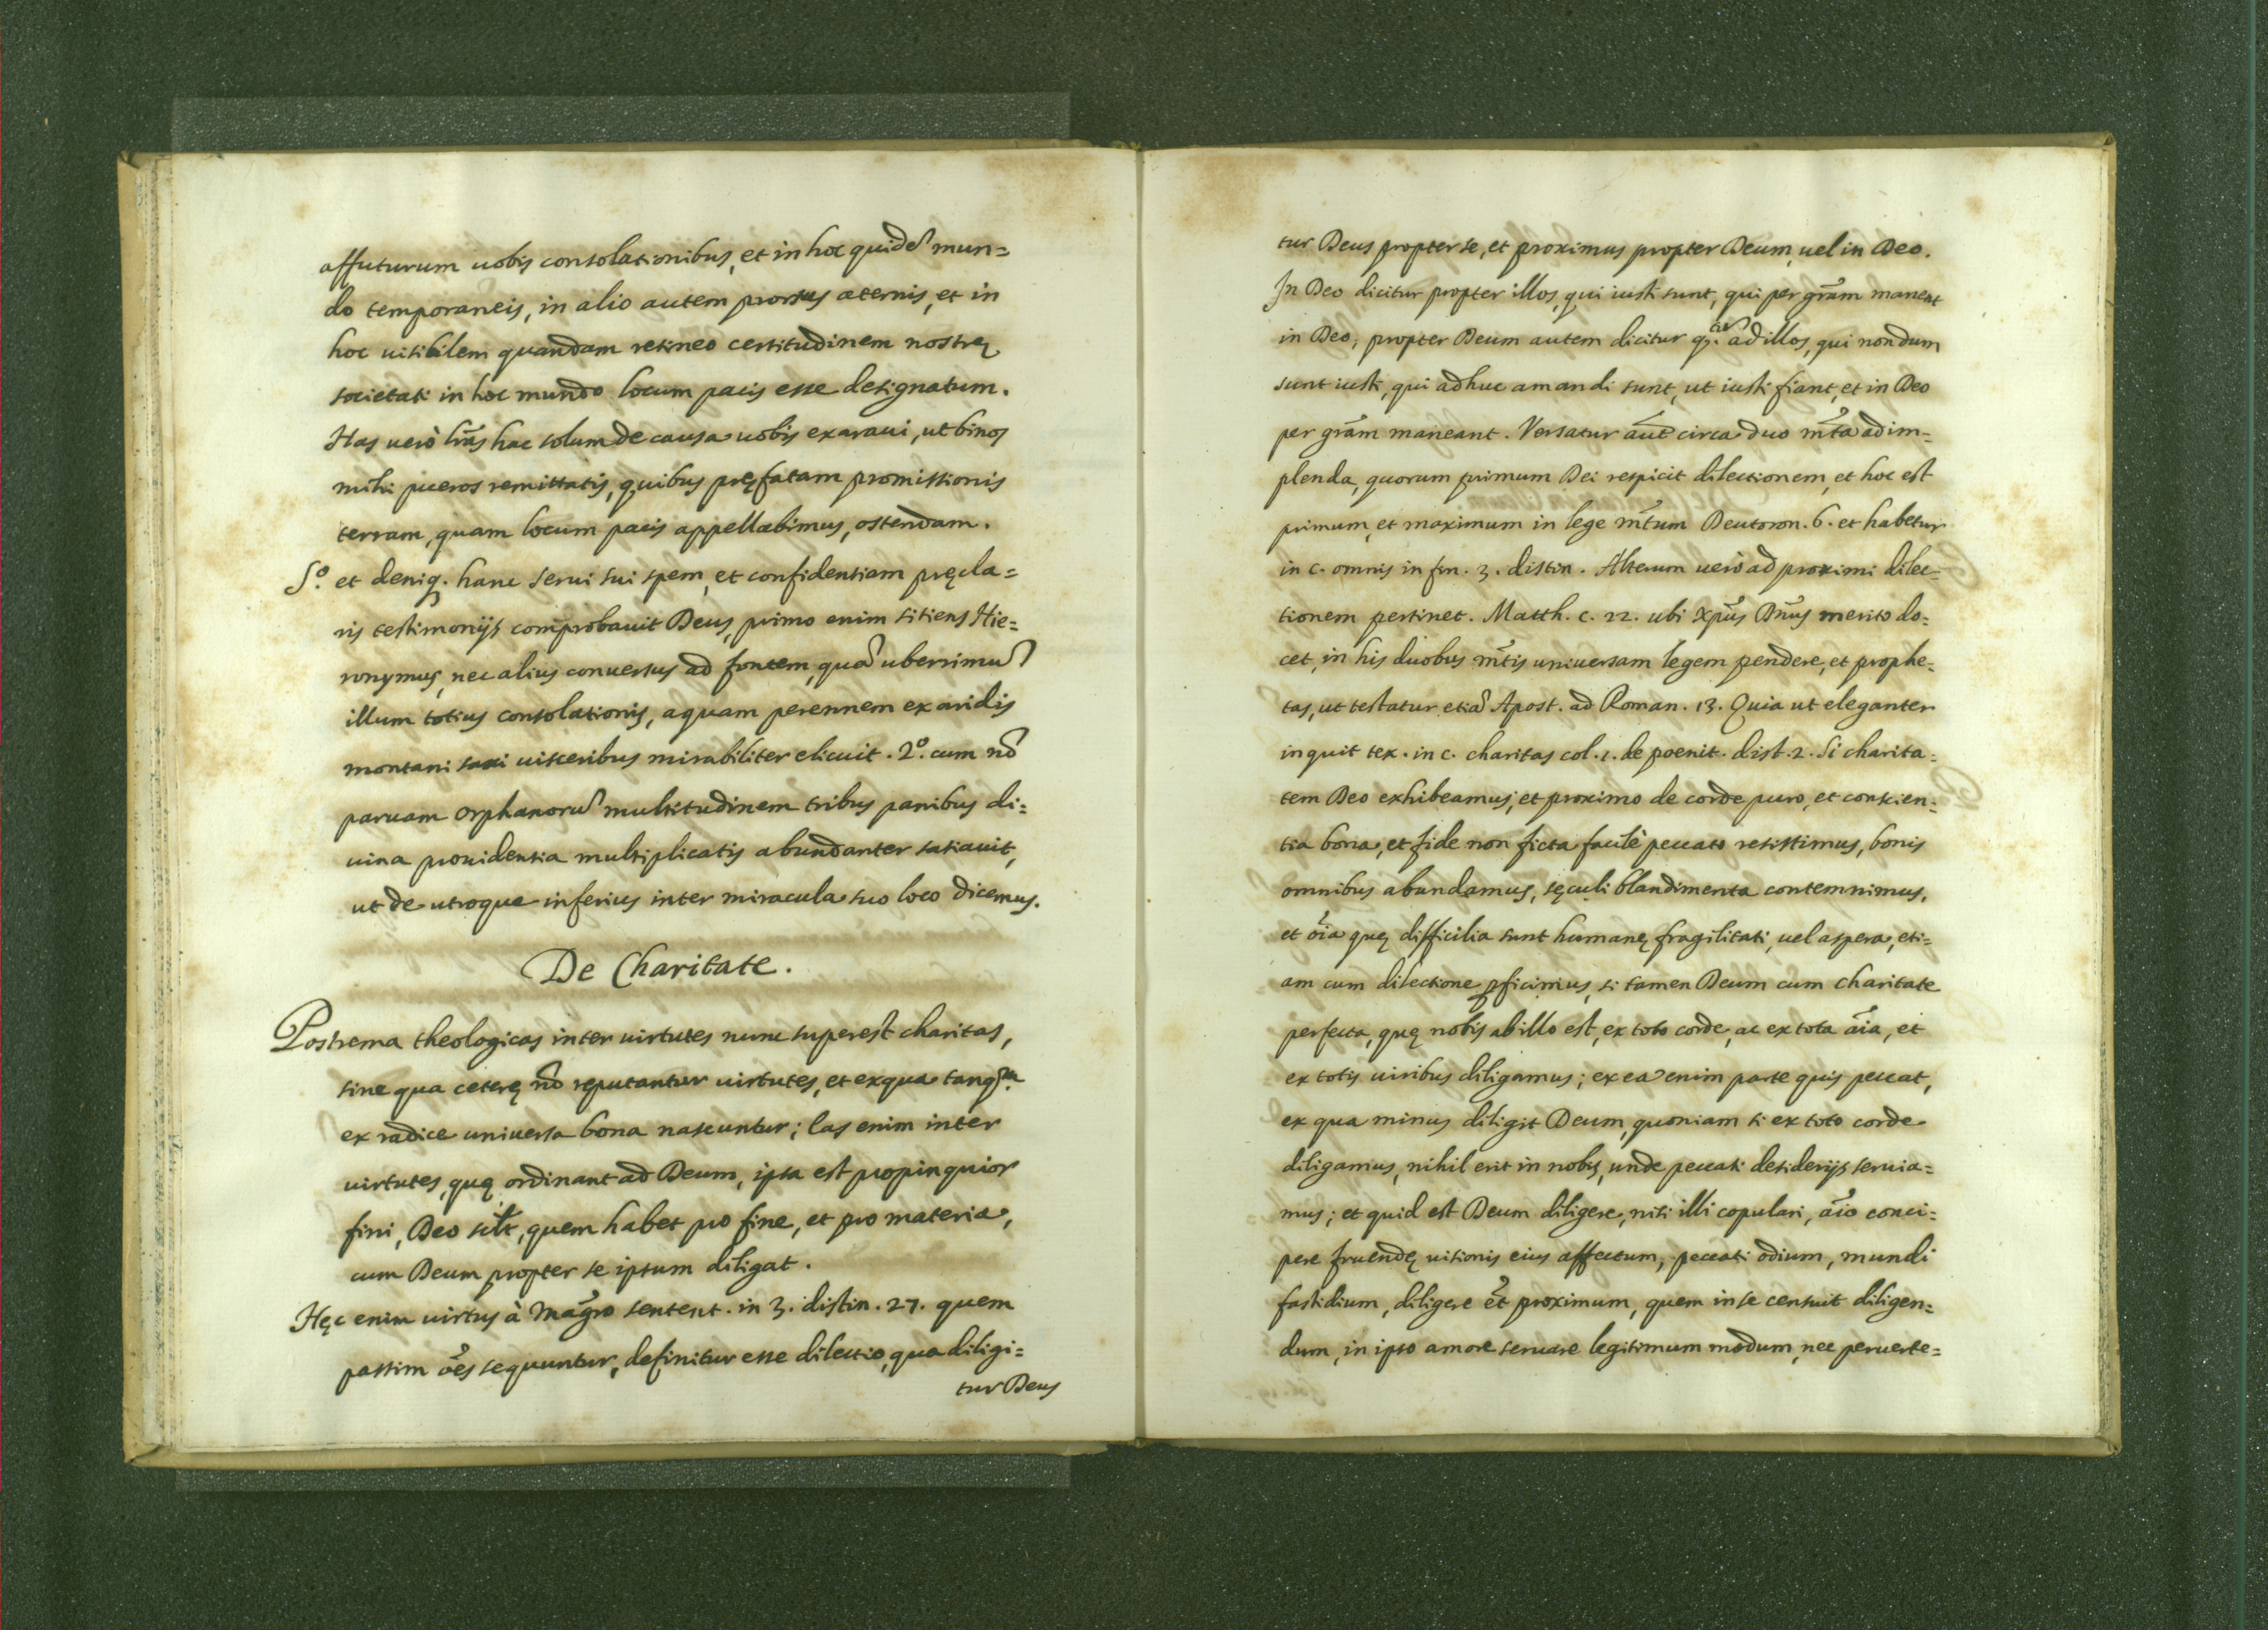 affuturum uobis consolationibus, et in hoc quidẽ mun=
do temporaneis, in alio autem prorsus æternis, et in
hoc uisibilem quandam retineo certitudinem nostrę
societati in hoc mundo locum pacis esse designatum.
Has uerò lr̃as hac solum de causa uobis exaraui, ut binos
mihi pueros remittatis, quibus pręfatam promissionis
terram, quam locum pacis appellabimus, ostendam.
S.º et deniq. hanc serui sui spem, et confidentiam pręcla=
ris testimonijs comprobauit Deus, primo enim sitiens Hie=
ronymus, nec alius conuersus ad fontem, quã uberrimũ
illum totius consolationis, aquam perennem ex aridis
montani saxi uisceribus mirabiliter elicuit. 2.º cum nõ
paruam orphanorũ multitudinem tribus panibus di=
uina prouidentia multiplicatis abundanter satiauit,
ut de utroque inferius inter miracula suo loco dicemus.
De Charitate.
Postrema theologicas inter uirtutes nunc superest charitas,
sine qua ceterę nõ reputantur uirtutes, et ex qua tanq.m
ex radice uniuersa bona nascuntur; las enim inter
uirtutes, quę ordinant ad Deum, ipsa est propinquior
fini, Deo silt, quem habet pro fine, et pro materia,
cum Deum propter se ipsum diligat.
Hęc enim uirtus à Mag̃ro sentent. in 3. distin. 27. quem
passim oẽs sequuntur, definitur esse dilectio, qua diligi=
tur Deus
tur Deus propter se, et proximus propter Deum, uel in Deo.
In Deo dicitur propter illos, qui iusti sunt, qui per gr̃am manent
in Deo, propter Deum autem dicitur ad illos, qui nondum
sunt iusti, qui adhuc amandi sunt, ut iusti fiant, et in Deo
per gr̃am maneant. Versatur aũt circa duo m̃ta adim=
plenda, quorum primum Dei respicit dilectionem, et hoc est
primum, et maximum in lege m̃tum Deutoron. 6. et habetur
in c. omnis in fin. 3. distin. Alterum uerò ad proximi dilec=
tionem pertinet. Matth. c. 22. ubi Xp̃us Dñus merito do=
cet, in his duobus m̃tis uniuersam legem pendere, et prophe=
tas, ut testatur etiã Apost. ad Roman. 13. Quia ut eleganter
inquit tex. in c. charitas col. 1. de poenit. dist. 2. Si charita=
tem Deo exhibeamus, et proximo de corde puro, et conscien=
tia bona, et fide non ficta facilè peccato resistimus, bonis
omnibus abundamus, sęculi blandimenta contemnimus,
et oĩa quę difficilia sunt humanę fragilitati, uel aspera, eti=
am cum dilectione ꝑficimus, si tamen Deum cum charitate
perfecta, quę nobis ab illo est, ex toto corde, ac ex tota aĩa, et
ex totis uiribus diligamus; ex ea enim parte quis peccat,
ex qua minus diligit Deum, quoniam si ex toto corde
diligamus, nihil erit in nobis, unde peccati desiderijs seruia=
mus; et quid est Deum diligere, nisi illi copulari, aĩo conci=
pere fruendę uisionis eius affectum, peccati odium, mundi
fastidium, diligere et̃ proximum, quem in se censuit diligen=
dum, in ipso amore seruare legitimum modum, nec peruerte=